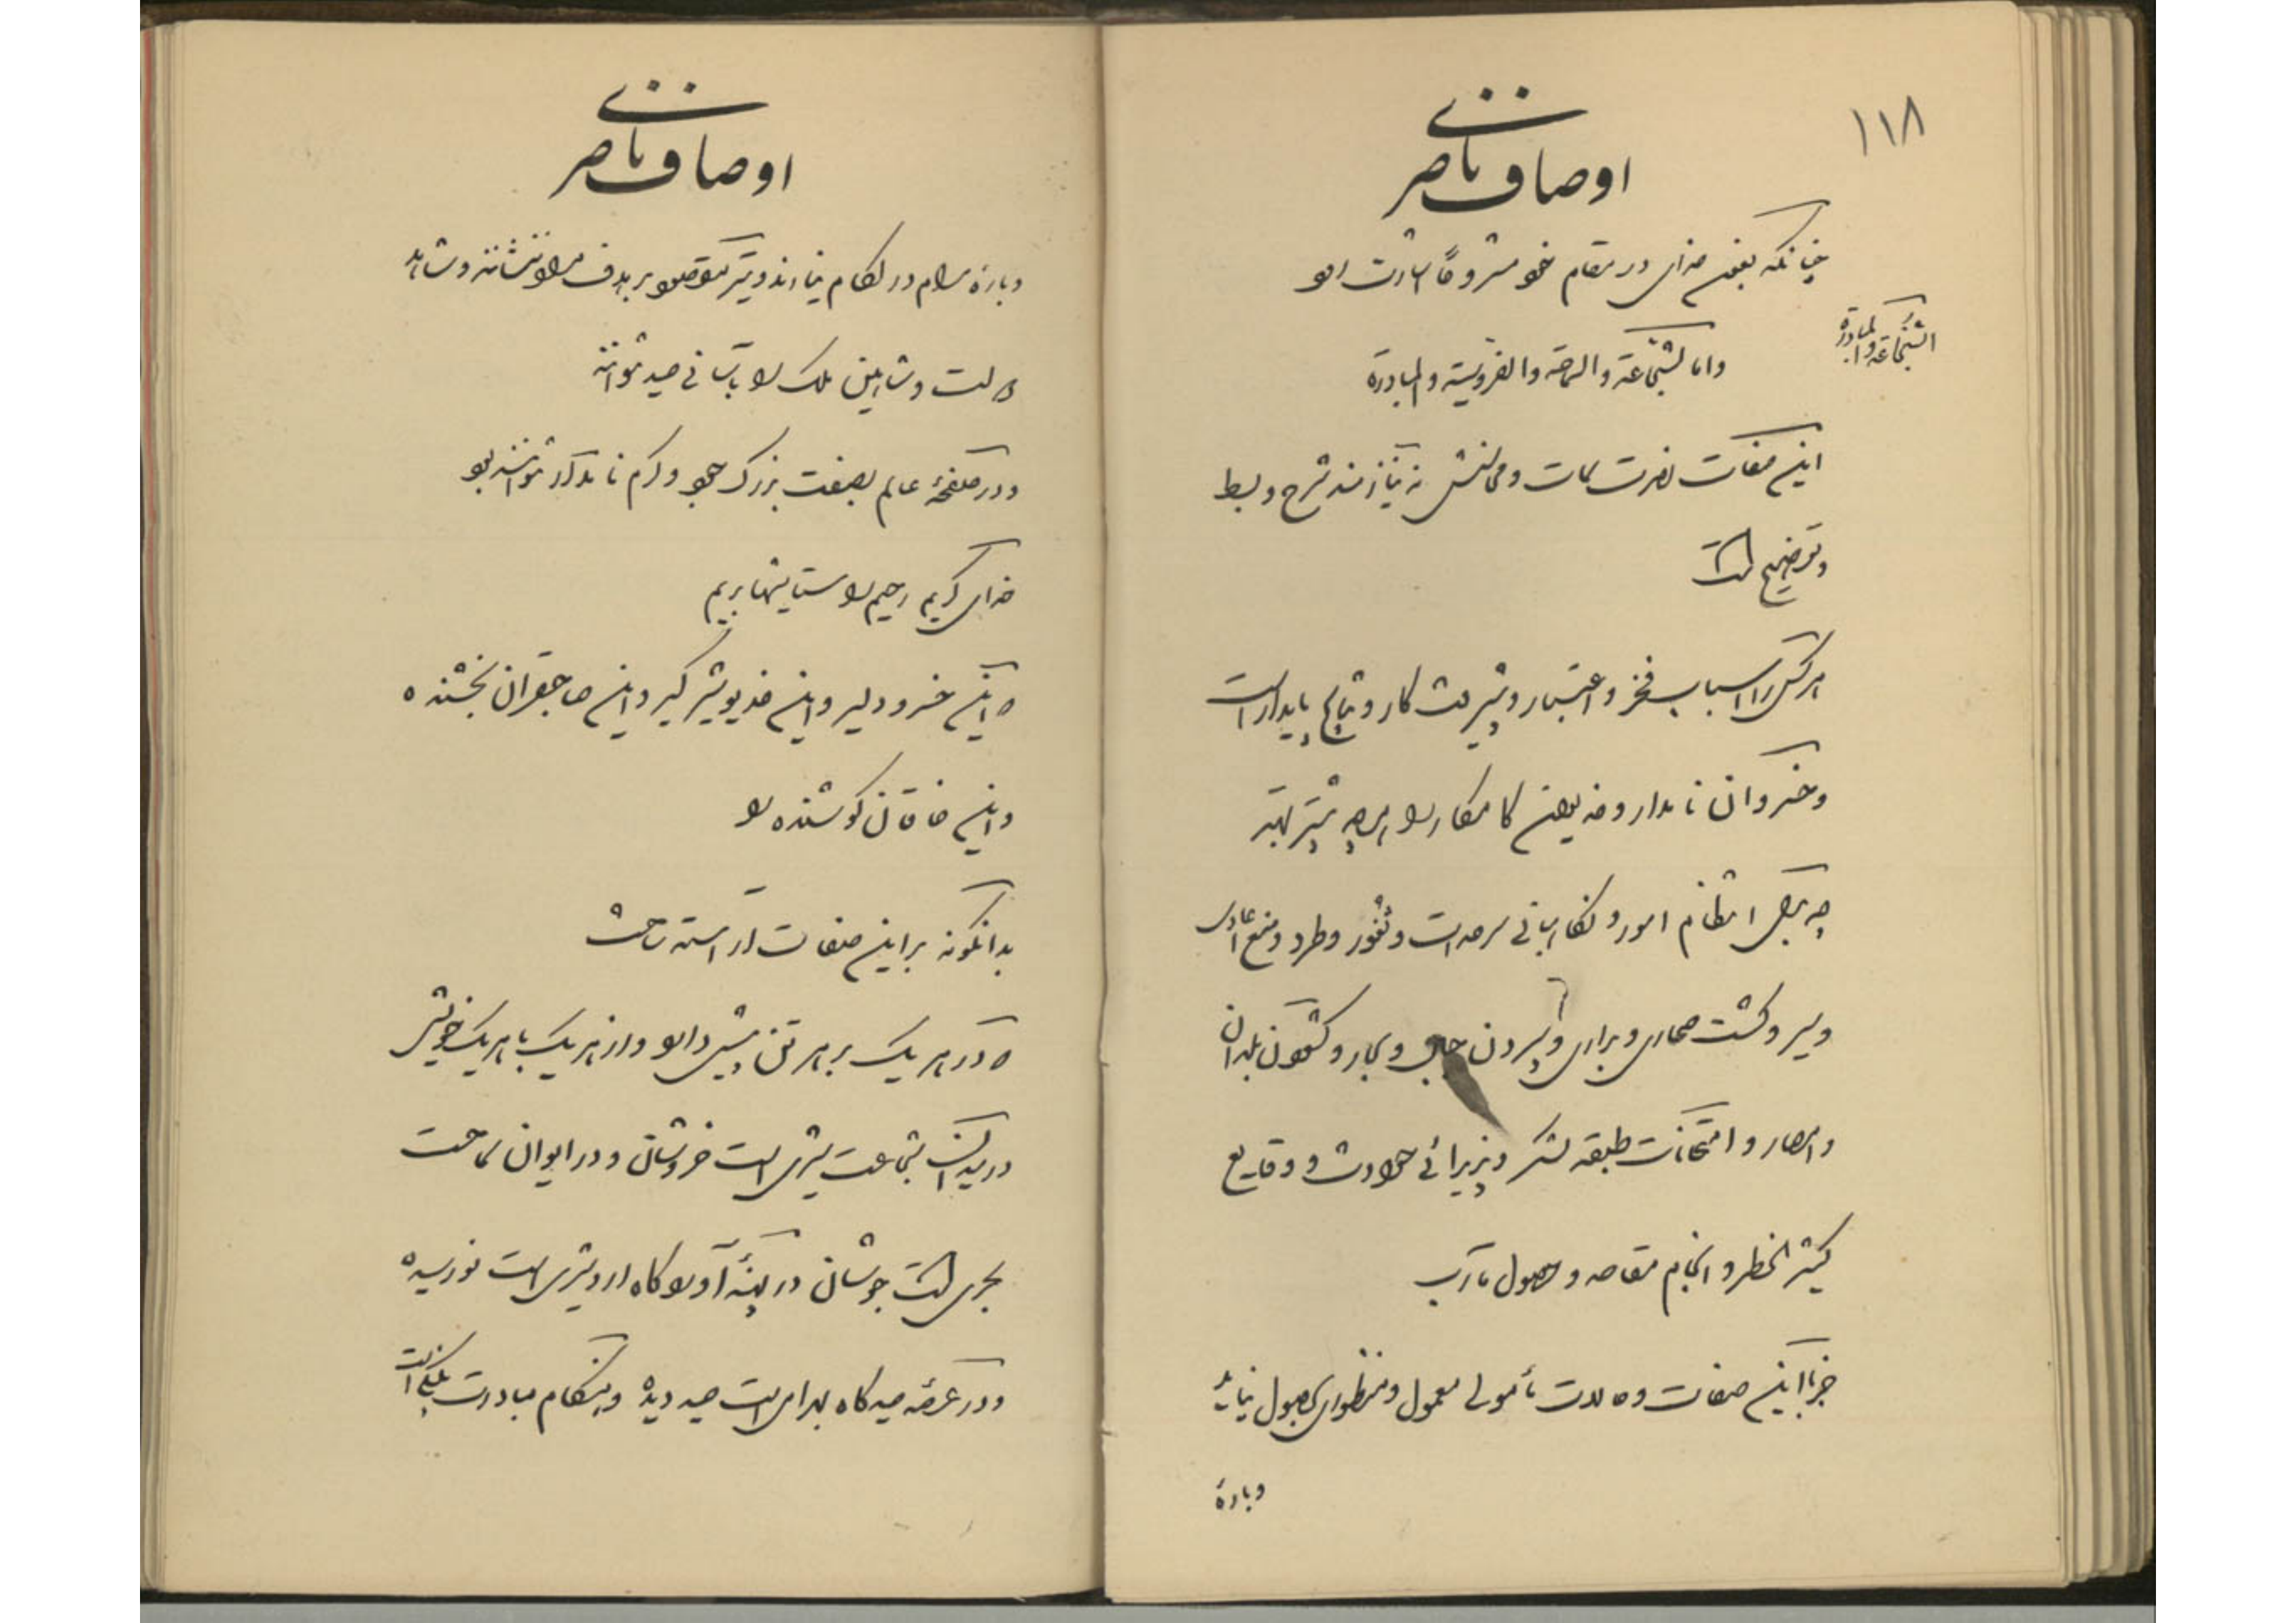 ۱۱۸
اوصاف ناصری
چنانکه بعون خدای در مقام خود مشروحاً اشارت رود
الشجاعة والمبادرة
واما الشجاعة والسماحة والفروسیة والمبادرة
این صفات نصرت سمات و محاسنش نه نیازمند شرح و بسط
و توضیح است
هرکس را اسباب فخر و اعتبار و پیشرفت کار و نتایج پایدار است
و خسروان نامدار و خدیوان کامکار را هرچه بیشتر بهتر
چه برای انتظام امور و نگاهبانی سرحدات و ثغور و طرد و منع اعادی
و سیر و گشت صحاری و براری و سپردن جبال و بحار و گشودن بلدان
و امصار و امتحانات طبقه لشکر و پذیرائی حوادث و وقایع
کثیر الخطر و انجام مقاصد و حصول مآرب
جز با این صفات و حالات مأمولی معمول و منظوری بحصول نیاید
و باره
اوصاف ناصری
و باره مرام در لگام نیارند و تیر مقصود بر هدف مراد ننشانند و شاهد
دولت و شاهین ملک را بآسانی صید نتوانند
و در صفحهٔ عالم بصفت بزرگ جود و کرم نامدار نتوانند بود
خدای کریم رحیم را ستایشها بریم
که این خسرو دلیر و این خدیو شیرگیر و این صاحبقران بخشنده
و این خاقان کوشنده را
بدانگونه بر این صفات آراسته ساخت
که در هر یک بر هر تن پیشی دارد و از هر یک با هر یک خویشی
در میدان شجاعت شیری است خروشان و در ایوان سماحت
بحری است جوشان در پهنهٔ آوردگاه اردشیری است نو رسیده
و در عرصه صیدگاه بهرامی است صید دیده و هنگام مبادرت پلنگی است